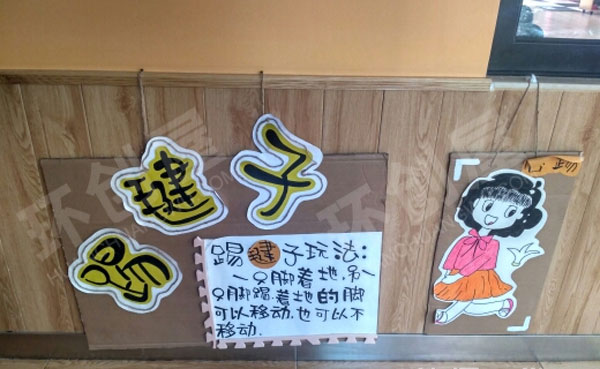 踢毽子
踢毽子玩法:
一只脚着地.另一
只脚踢.着地的脚
可以移动.也可以不
移动.
环创屋